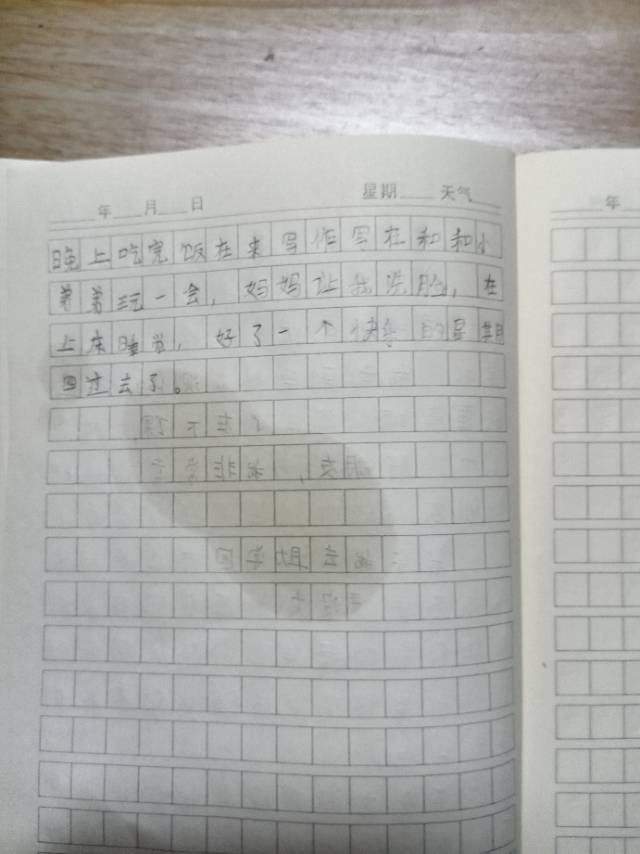 年 月 日 星期 天气
年
晚上吃完饭在来写作写在和和小
弟弟玩一会，妈妈让我洗脸，在
上床睡觉，好了一个快乐的星期
四过去了。